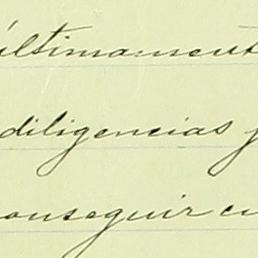 últimament
diligencias p
onseguir cu